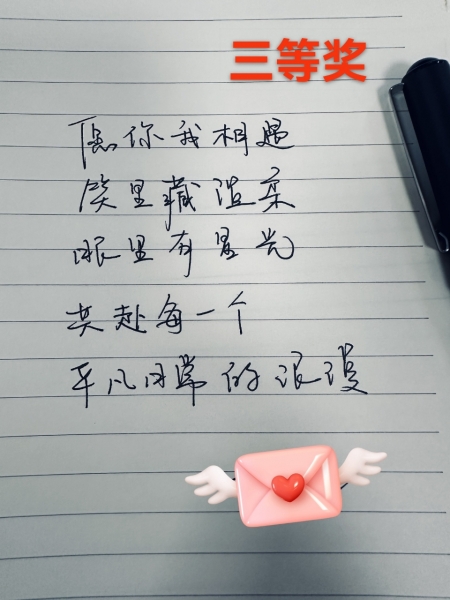 三等奖
愿你我相遇
笑里藏温柔
眼里有星光
共赴每一个
平凡日常的浪漫